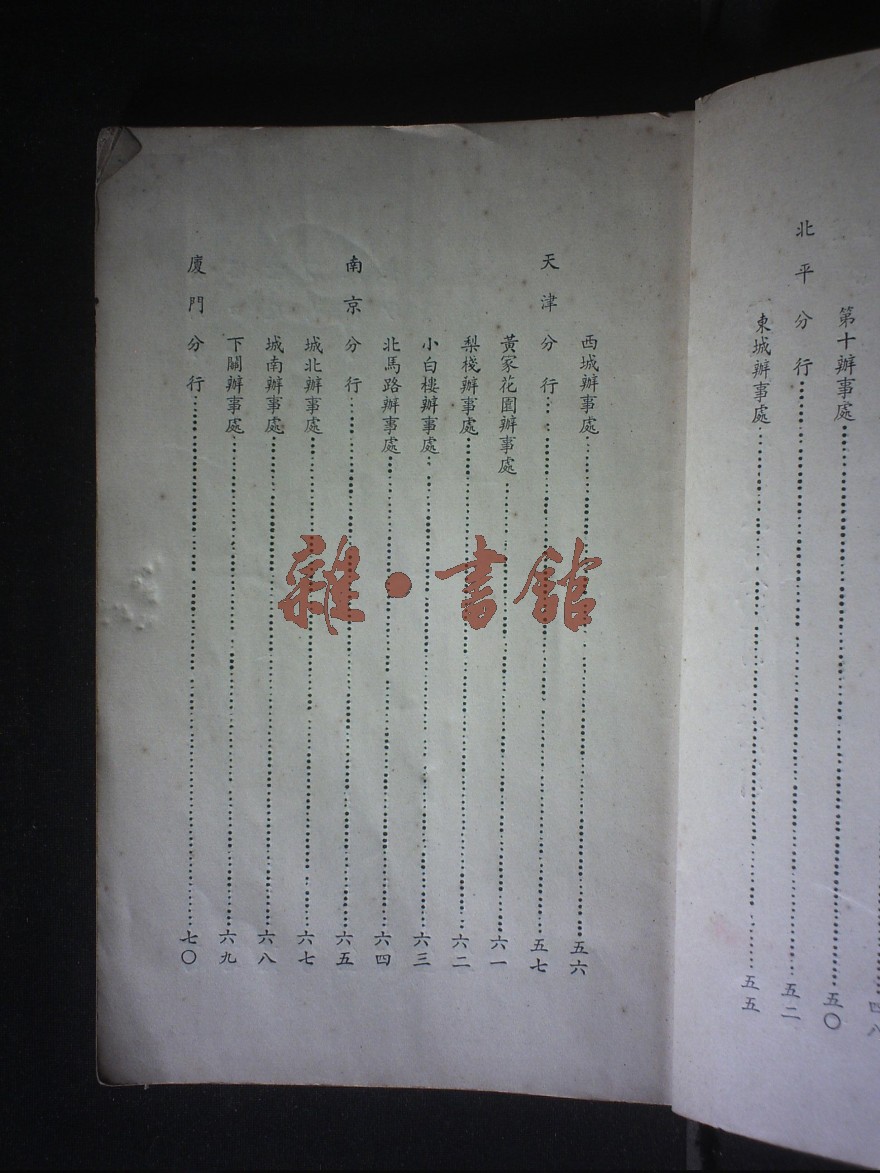 四八
第十辦事處 五〇
北平分行 五二
東城辦事處 五五
西城辦事處 五六
天津分行 五七
黃家花園辦事處 六一
梨棧辦事處 六二
小白樓辦事處 六三
北馬路辦事處 六四
南京分行 六五
城北辦事處 六七
城南辦事處 六八
下關辦事處 六九
廈門分行 七〇
雜·書館